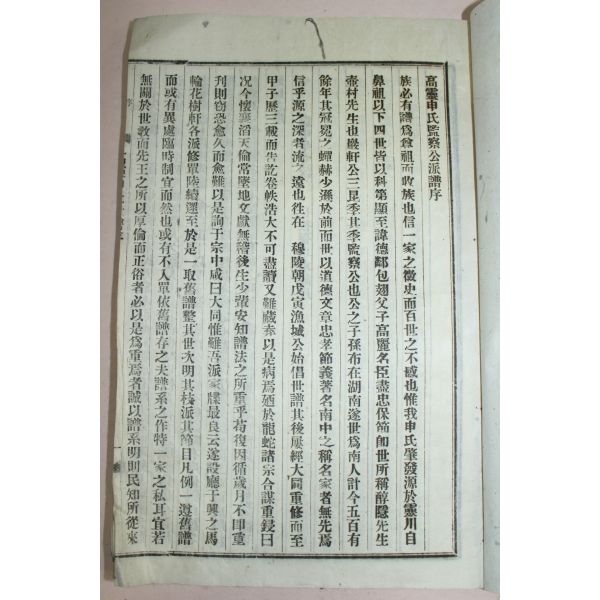 高靈申氏監察公派譜序
族必有譜爲尊祖而收族也信一家之徵史而百世之不慽也惟我申氏肇發源於靈川自
鼻祖以下四世皆以科第顯至諱德鄰包翅父子高麗名臣盡忠保節即世所稱醇隱先生
壺村先生也巖軒公三昆季其季監察公也公之子孫布在湖南遂世爲南人計今五百有
餘年其冠冕之蟬赫少遜於前而世以道德文章忠孝節義著名南中之稱名家者無先焉
信乎源之深者流之遠也徃在 穆陵朝戊寅漁城公始倡世譜其後屢經大同重修而至
甲子歷三載而告訖卷帙浩大不可盡讀又難藏奉以是病焉廼於龍蛇諸宗合謀重鋟曰
况今懷襄滔天倫常墜地文獻無稽後生少輩安知譜法之所重乎苟復因循歲月不即重
刋則竊恐愈久而愈難以是詢于宗中咸曰大同惟難吾派家牒最良云遂設廳于興之馬
輪花樹軒各派修單陸續還至於是一取舊譜整其世次明其枝派其節目凡例一遵舊譜
而或有異處臨時制宜而然也或有不入單依舊譜存之夫譜系之作特一家之私耳宜若
無關於世敎而先王之所以厚倫而正俗者必以是爲重焉者誠以譜系明則民知所從來